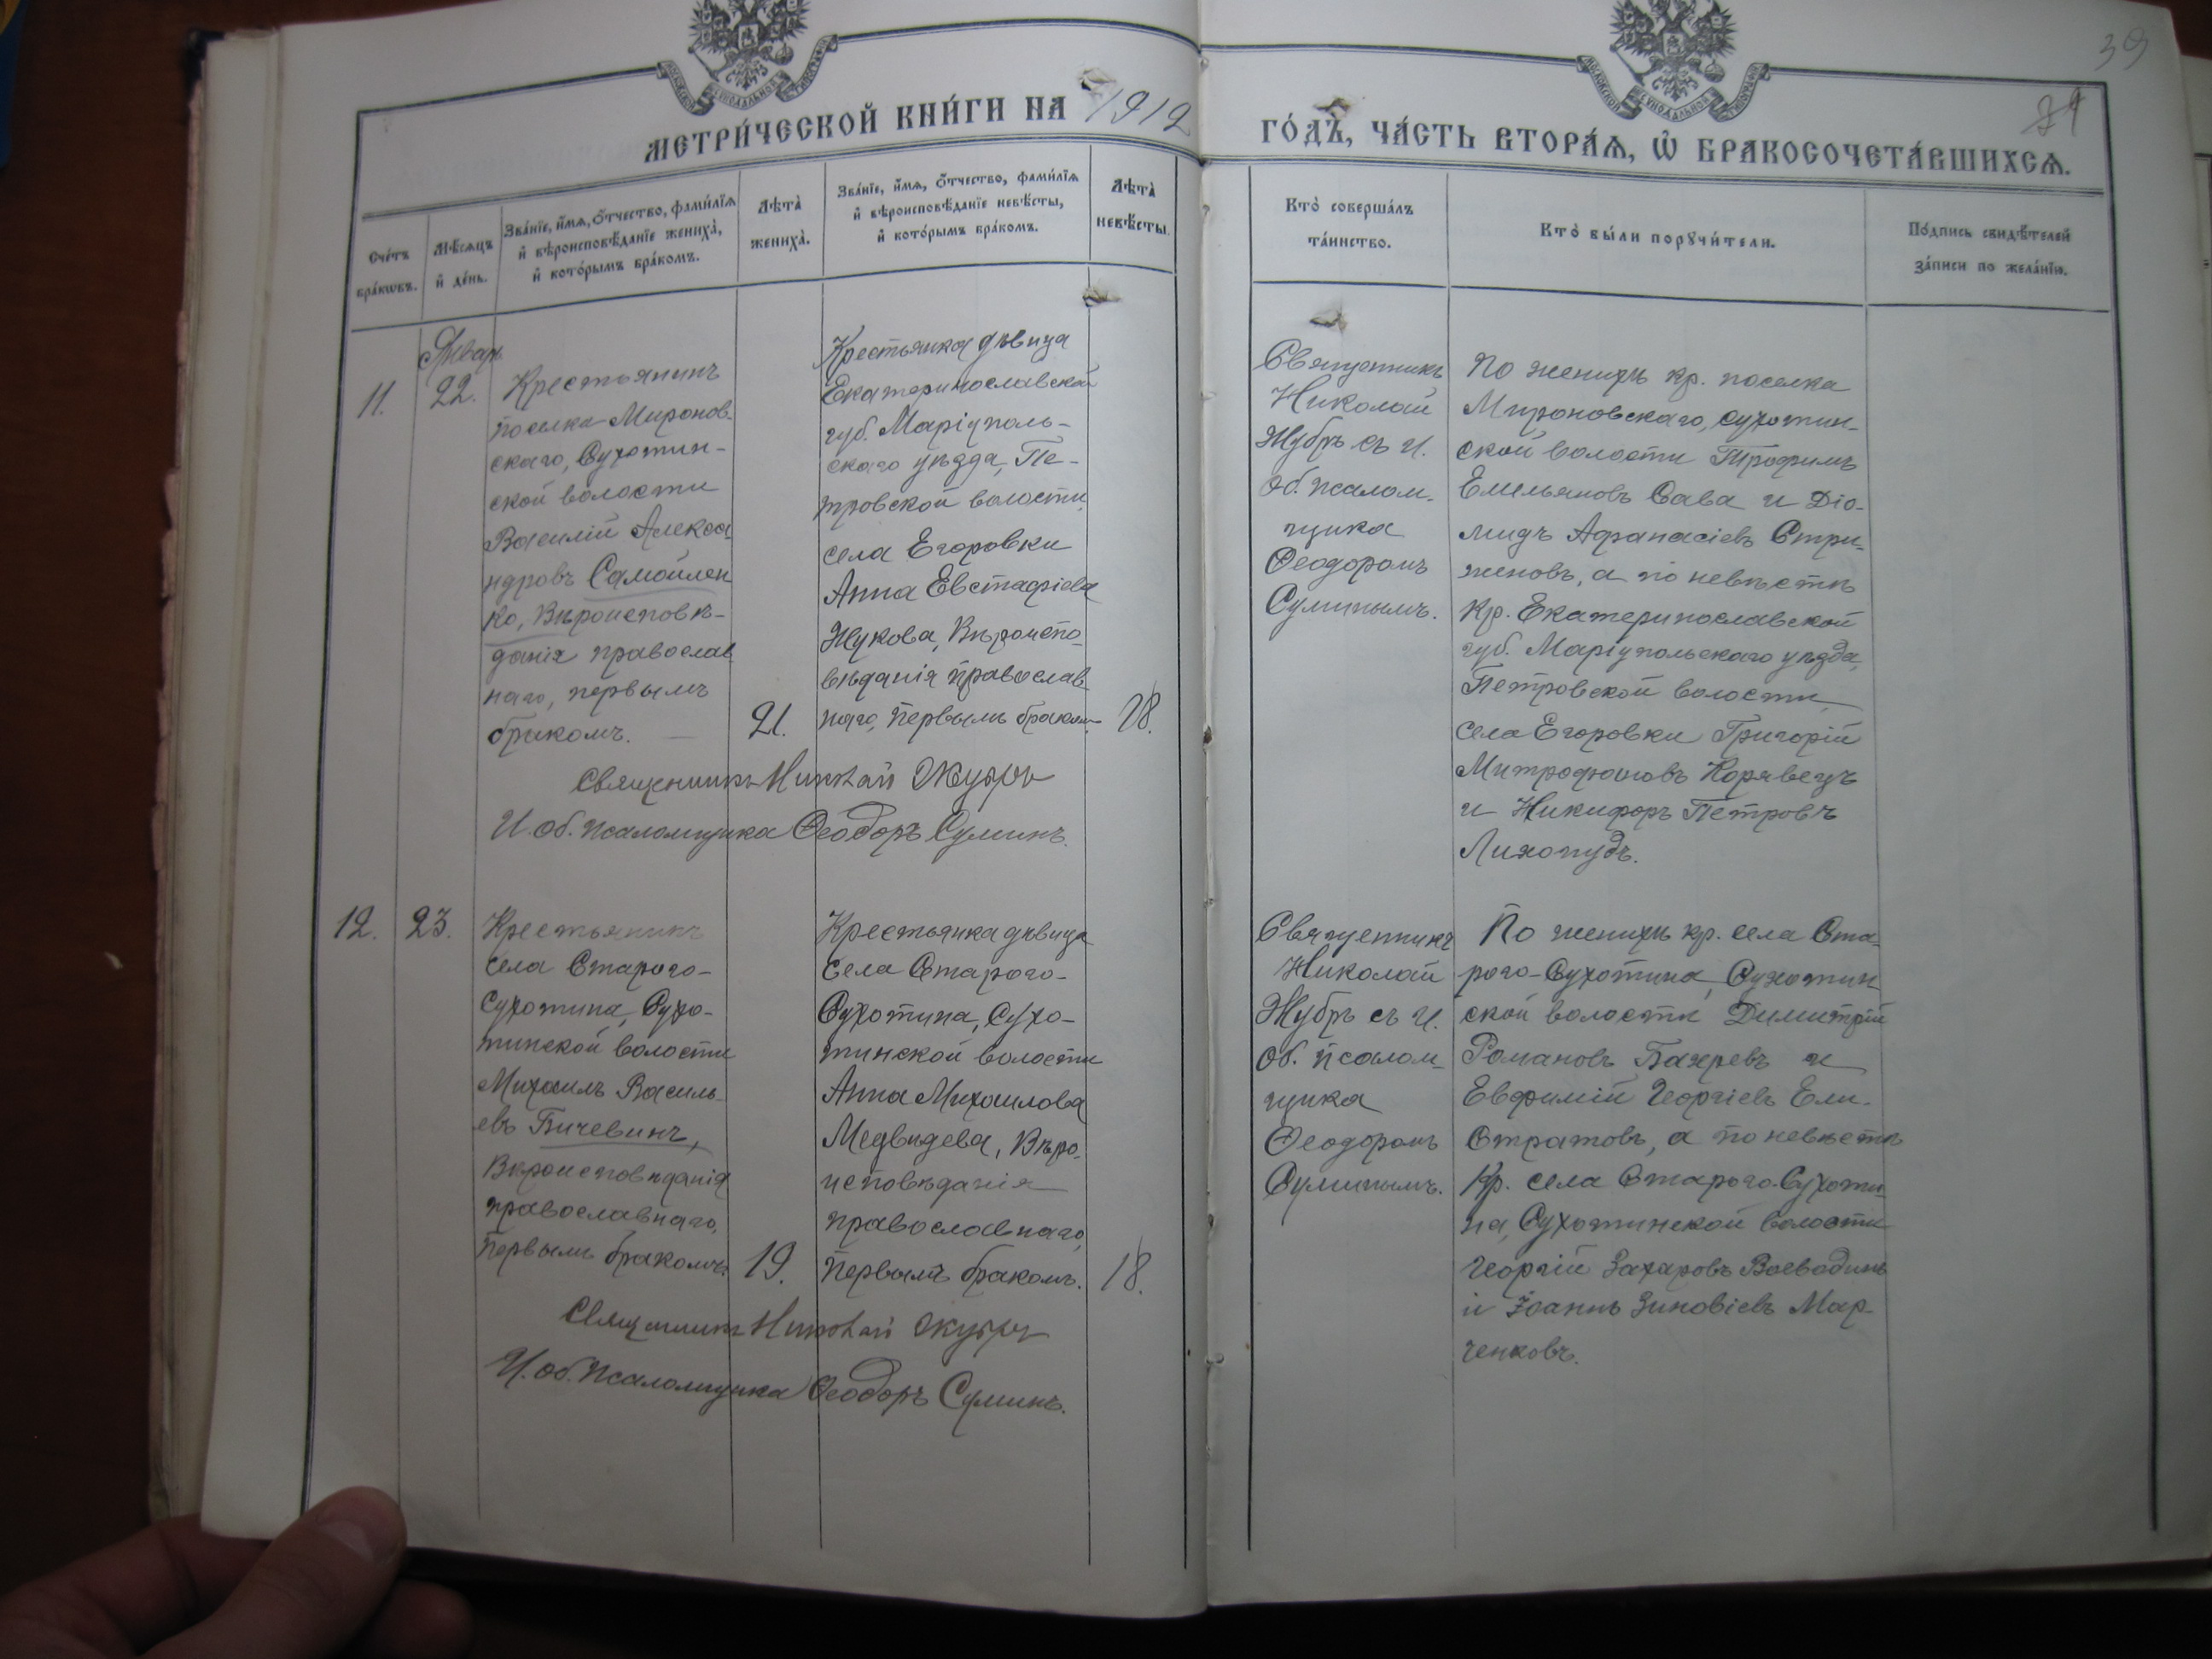 39
МОСКОВСКОЙ СѴНОДАЛЬНОЙ ТИПОГРАФІИ
МОСКОВСКОЙ СѴНОДАЛЬНОЙ ТИПОГРАФІИ
МЕТРИ́ЧЕСКОЙ КНИ́ГИ НА 1912
ГО́ДЪ, ЧА́СТЬ ВТОРА́Ѧ, Ѡ҆ БРАКОСОЧЕТА́ВШИХСѦ.
Сче́тъ
бра́кѡвъ.
Мѣ́сѧцъ
и҆ де́нь.
Зва́нїе, и҆́мѧ, ѻ҆́тчество, фами́лїѧ
и҆ вѣроисповѣ́данїе жениха̀,
и҆ кото́рымъ бра́комъ.
Лѣ́та̀
жениха̀.
Зва́нїе, и҆́мѧ, ѻ҆́тчество, фами́лїѧ
и҆ вѣроисповѣ́данїе невѣ́сты,
и҆ кото́рымъ бра́комъ.
Лѣ́та̀
невѣ́сты.
Кто̀ соверша́лъ
та́инство.
Кто̀ бы́ли порꙋчи́тели.
По́дпись свидѣ́телей
за́писи по жела́нїю.
11.
Январь
22.
Крестьянинъ
поселка Миронов-
скаго, Сухотин-
ской волости
Василій Алекса-
ндровъ Самойлен
ко, Вѣроисповѣ-
данія православ
наго, первымъ
бракомъ.
21.
Крестьянка дѣвица
Екатеринославской
губ. Маріуполь-
скаго уѣзда, Пе-
тровской волости,
села Егоровки
Анна Евстафіева
Жукова, Вѣроиспо-
вѣданія православ-
наго, первымъ бракомъ.
18.
Священникъ
Николай
Жубръ съ И.
об. псалом-
щика
Ѳеодоромъ
Сулинымъ.
По женихѣ кр. поселка
Мироновскаго, Сухотин-
ской волости Трофимъ
Емельяновъ Сава и Діо-
мидъ Афанасіевъ Стри-
женовъ, а по невѣстѣ
кр. Екатеринославской
губ. Маріупольскаго уѣзда,
Петровской волости,
села Егоровки Григорій
Митрофановъ Корявецъ
и Никифоръ Петровъ
Лихопудъ.
Священникъ Николай Жубръ
И. об. псаломщика Ѳеодоръ Сулинъ.
12.
23.
Крестьянинъ
села Старого-
Сухотина, Сухо-
тинской волости
Михаилъ Василь-
евъ Бичевинъ,
Вѣроисповѣданія
православнаго,
первымъ бракомъ.
19.
Крестьянка дѣвица
села Старого-
Сухотина, Сухо-
тинской волости
Анна Михаилова
Медвидева, Вѣро-
исповѣданія
православнаго,
первымъ бракомъ.
18.
Священникъ
Николай
Жубръ съ И.
об. псалом-
щика
Ѳеодоромъ
Сулинымъ.
По женихѣ кр. села Ста-
рого-Сухотина, Сухотин
ской волости Димитрій
Романовъ Бахревъ и
Евфимій Георгіевъ Ели-
стратовъ, а по невѣстѣ
кр. села Старого-Сухоти-
на, Сухотинской волости
Георгій Захаровъ Воеводинъ
и Іоаннъ Зиновіевъ Мар-
ченковъ.
Священникъ Николай Жубръ
И. об. псаломщика Ѳеодоръ Сулинъ.